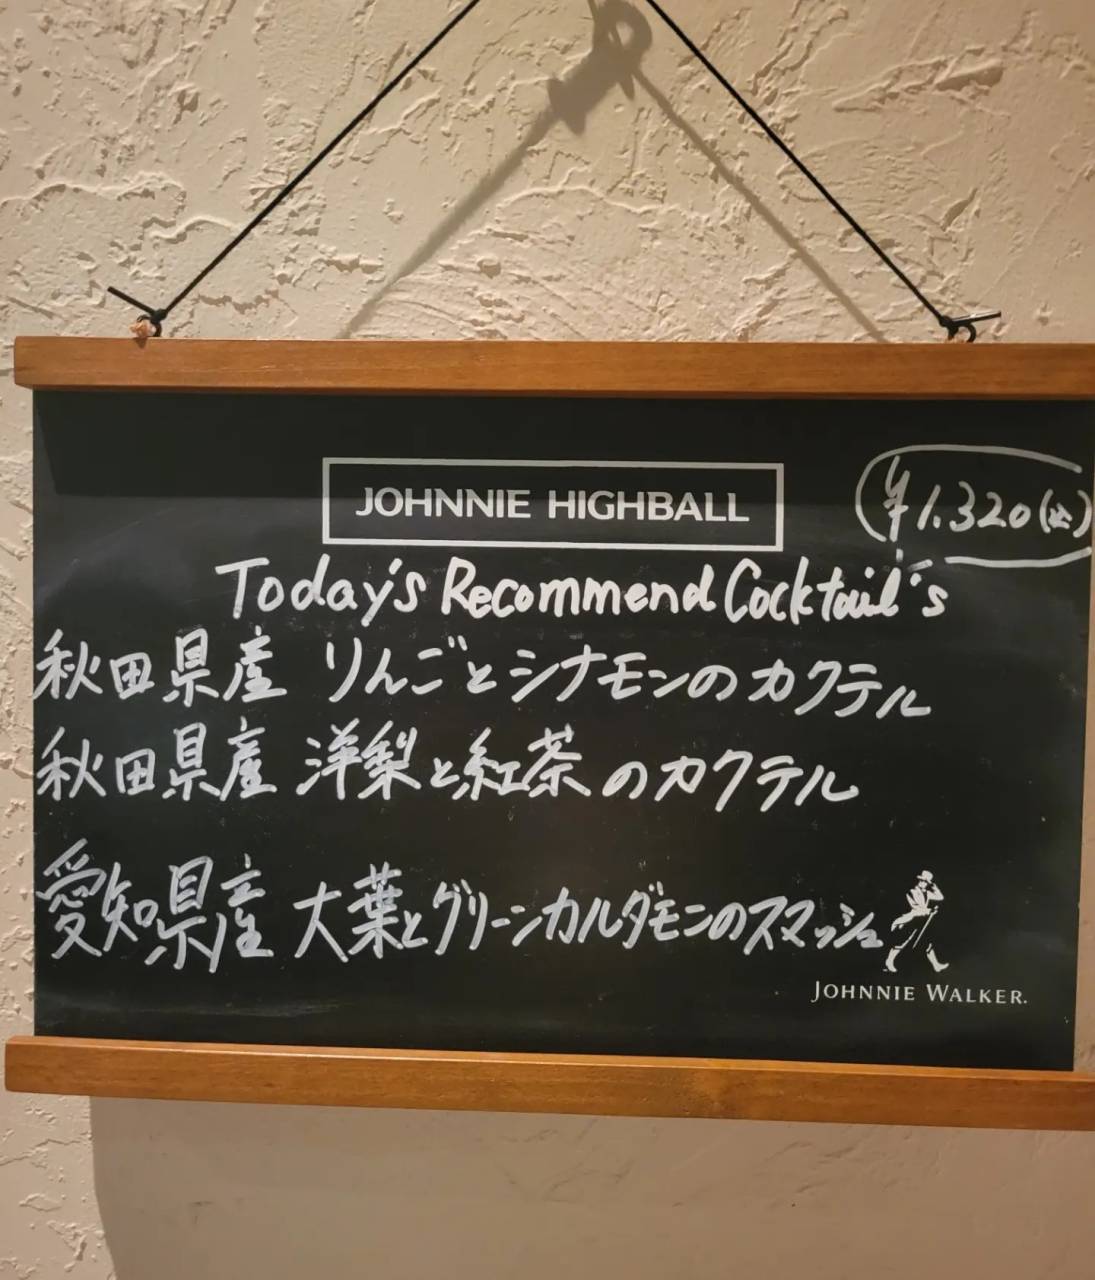 JOHNNIE HIGHBALL
¥1.320(込)
Today's Recommend Cocktail's
秋田県産 りんごとシナモンのカクテル
秋田県産 洋梨と紅茶のカクテル
愛知県産 大葉とグリーンカルダモンのスマッシュ
JOHNNIE WALKER.